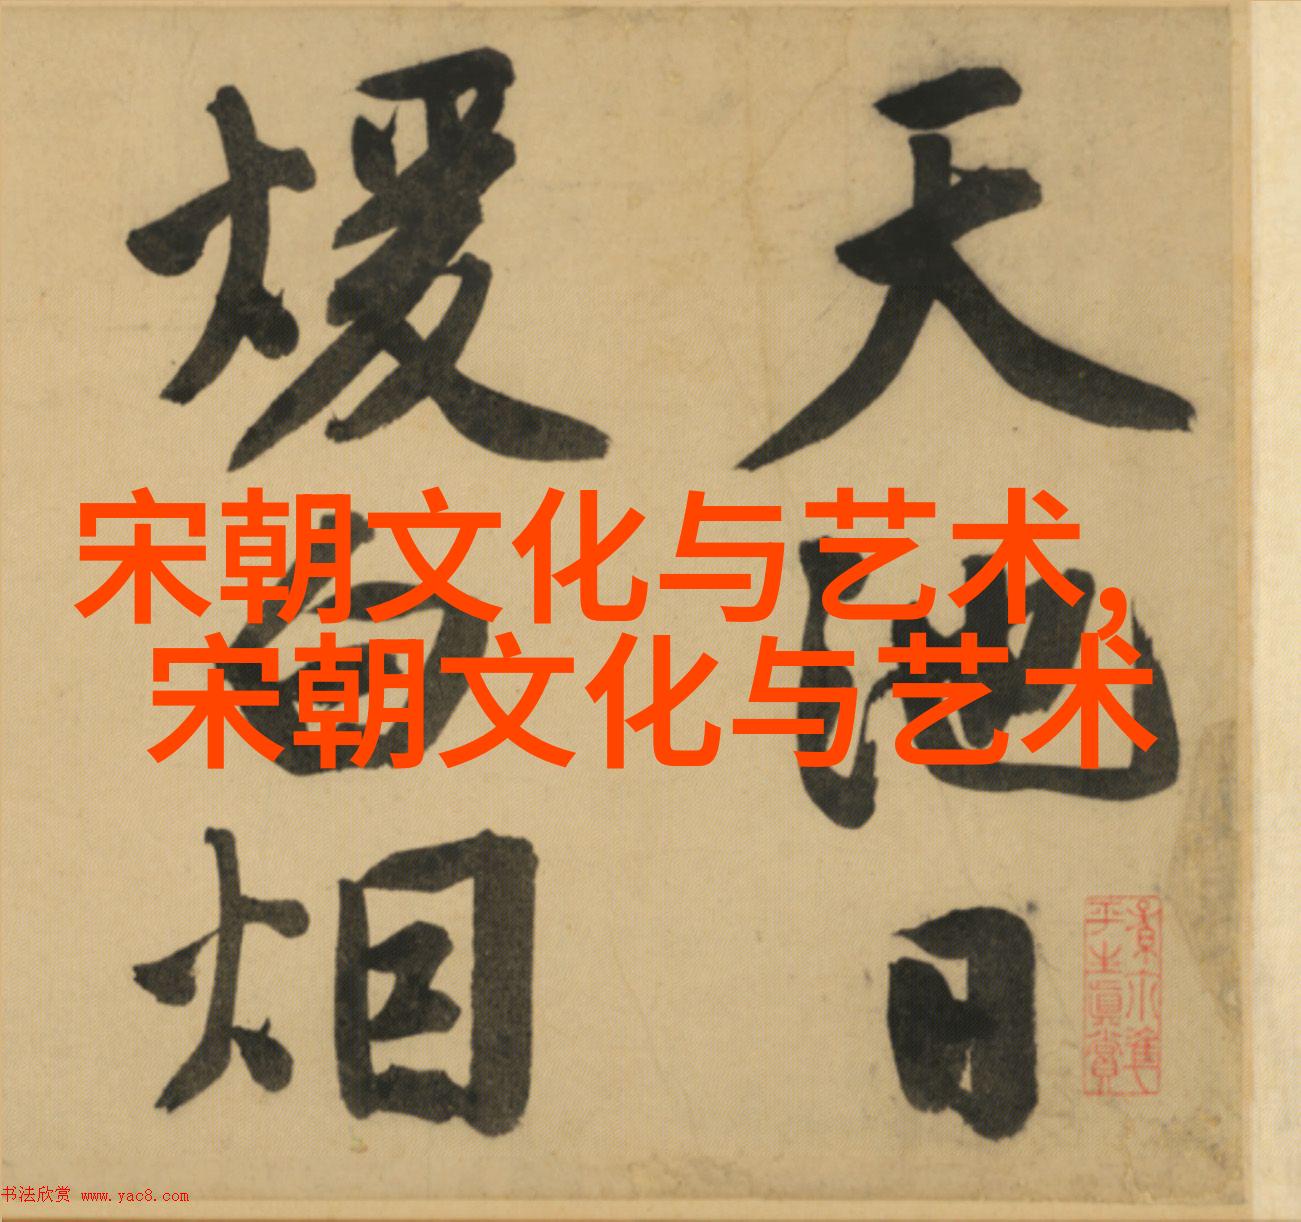 天池日
煖白烟
宋朝文化与艺术,
宋朝文化与艺术
平生真賞
书法欣赏 www.yac8.com